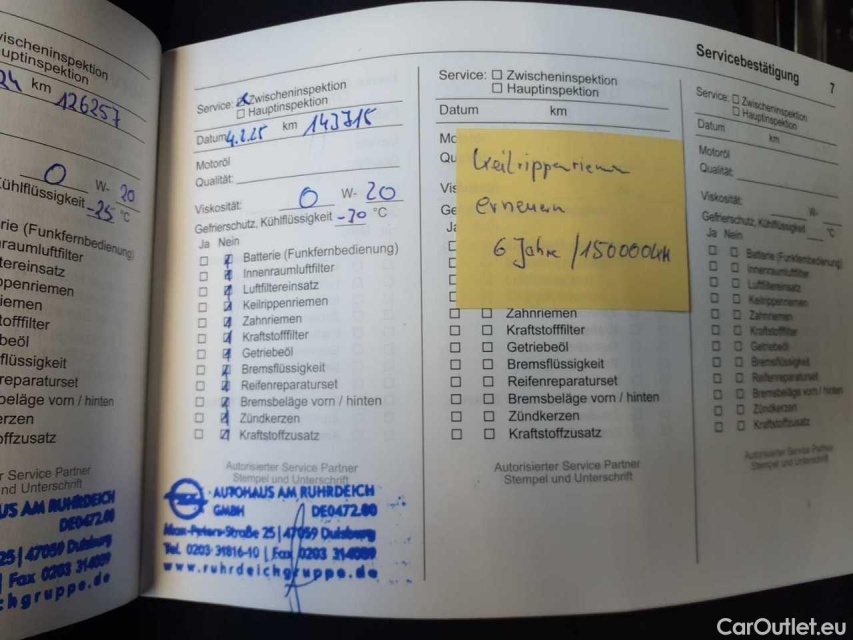 Zwischeninspektion
Hauptinspektion
24 km 126257
0 W- 20
Kühlflüssigkeit -25 °C
rie (Funkfernbedienung)
raumluftfilter
tereinsatz
ppenriemen
iemen
tofffilter
beöl
flüssigkeit
reparaturset
beläge vorn / hinten
erzen
offzusatz
r Service Partner
nd Unterschrift
US AM RUHRDEICH
DE0472.00
25 | 47059 Duisburg
| Fax 0203 314089
chgruppe.de
Service: ☒ Zwischeninspektion
☐ Hauptinspektion
Datum 4.2.25 km 143715
Motoröl
Qualität:
Viskosität: 0 W- 20
Gefrierschutz, Kühlflüssigkeit -30 °C
Ja Nein
☐ ☑ Batterie (Funkfernbedienung)
☐ ☑ Innenraumluftfilter
☐ ☑ Luftfiltereinsatz
☐ ☑ Keilrippenriemen
☐ ☑ Zahnriemen
☐ ☑ Kraftstofffilter
☐ ☑ Getriebeöl
☐ ☑ Bremsflüssigkeit
☐ ☑ Reifenreparaturset
☐ ☑ Bremsbeläge vorn / hinten
☐ ☑ Zündkerzen
☐ ☑ Kraftstoffzusatz
Autorisierter Service Partner
Stempel und Unterschrift
AUTOHAUS AM RUHRDEICH
GMBH DE0472.00
Max-Peters-Straße 25 | 47059 Duisburg
Tel. 0203 31816-10 | Fax 0203 314089
www.ruhrdeichgruppe.de
Service: ☐ Zwischeninspektion
☐ Hauptinspektion
Datum km
Mo
Qu
Vis
Ge
Ja
Keilrippenriemen
erneuern
6 Jahre / 150000km
☐ ☐ Zahnriemen
☐ ☐ Kraftstofffilter
☐ ☐ Getriebeöl
☐ ☐ Bremsflüssigkeit
☐ ☐ Reifenreparaturset
☐ ☐ Bremsbeläge vorn / hinten
☐ ☐ Zündkerzen
☐ ☐ Kraftstoffzusatz
Autorisierter Service Partner
Stempel und Unterschrift
Servicebestätigung 7
Service: ☐ Zwischeninspektion
☐ Hauptinspektion
Datum km
Motoröl
Qualität:
Viskosität: W-
Gefrierschutz, Kühlflüssigkeit °C
Ja Nein
☐ ☐ Batterie (Funkfernbedienung)
☐ ☐ Innenraumluftfilter
☐ ☐ Luftfiltereinsatz
☐ ☐ Keilrippenriemen
☐ ☐ Zahnriemen
☐ ☐ Kraftstofffilter
☐ ☐ Getriebeöl
☐ ☐ Bremsflüssigkeit
☐ ☐ Reifenreparaturset
☐ ☐ Bremsbeläge vorn / hinten
☐ ☐ Zündkerzen
☐ ☐ Kraftstoffzusatz
Autorisierter Service Partner
Stempel und Unterschrift
CarOutlet.eu